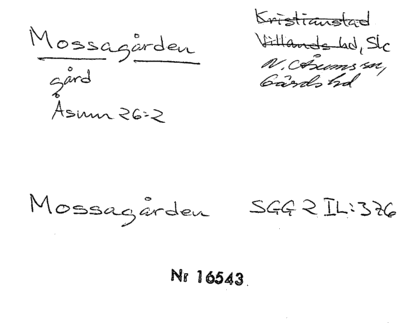 Mossagården
gård
Åsum 26:2
Kristianstad
Villands hd, Slc
N. Åsums sn,
Gärds hd
Mossagården SGG 2 IL:376
Nr 16543